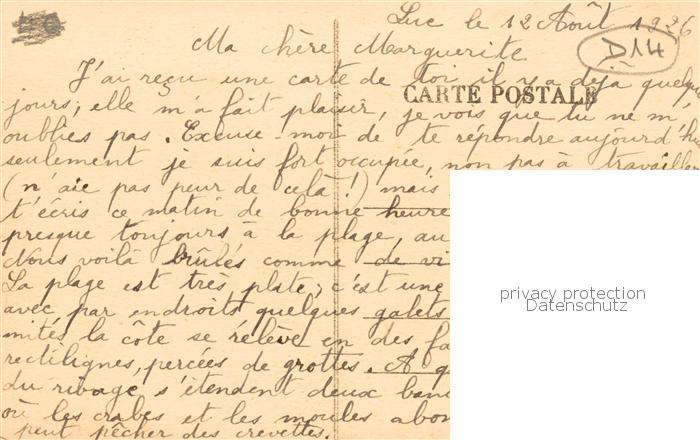 Luc le 12 Août 1926
D14
Ma chère Marguerite
J'ai reçu une carte de toi il y a déjà quelqu
CARTE POSTALE
jours; elle m'a fait plaisir, je vois que tu ne m'
oublies pas. Excuse-moi de te répondre aujourd'hui
seulement je suis fort occupée, non pas à travailler
(n'aie pas peur de celà!) mais
t'écris ce matin de bonne heure
presque toujours à la plage, au
Nous voilà brûlés comme de vi
La plage est très plate; c'est une
avec par endroits quelques galets
mités la côte se relève en des fa
rectilignes, percées de grottes. A q
du rivage s'étendent deux banc
où les crabes et les moules abon
peut pêcher des crevettes.
privacy protection
Datenschutz